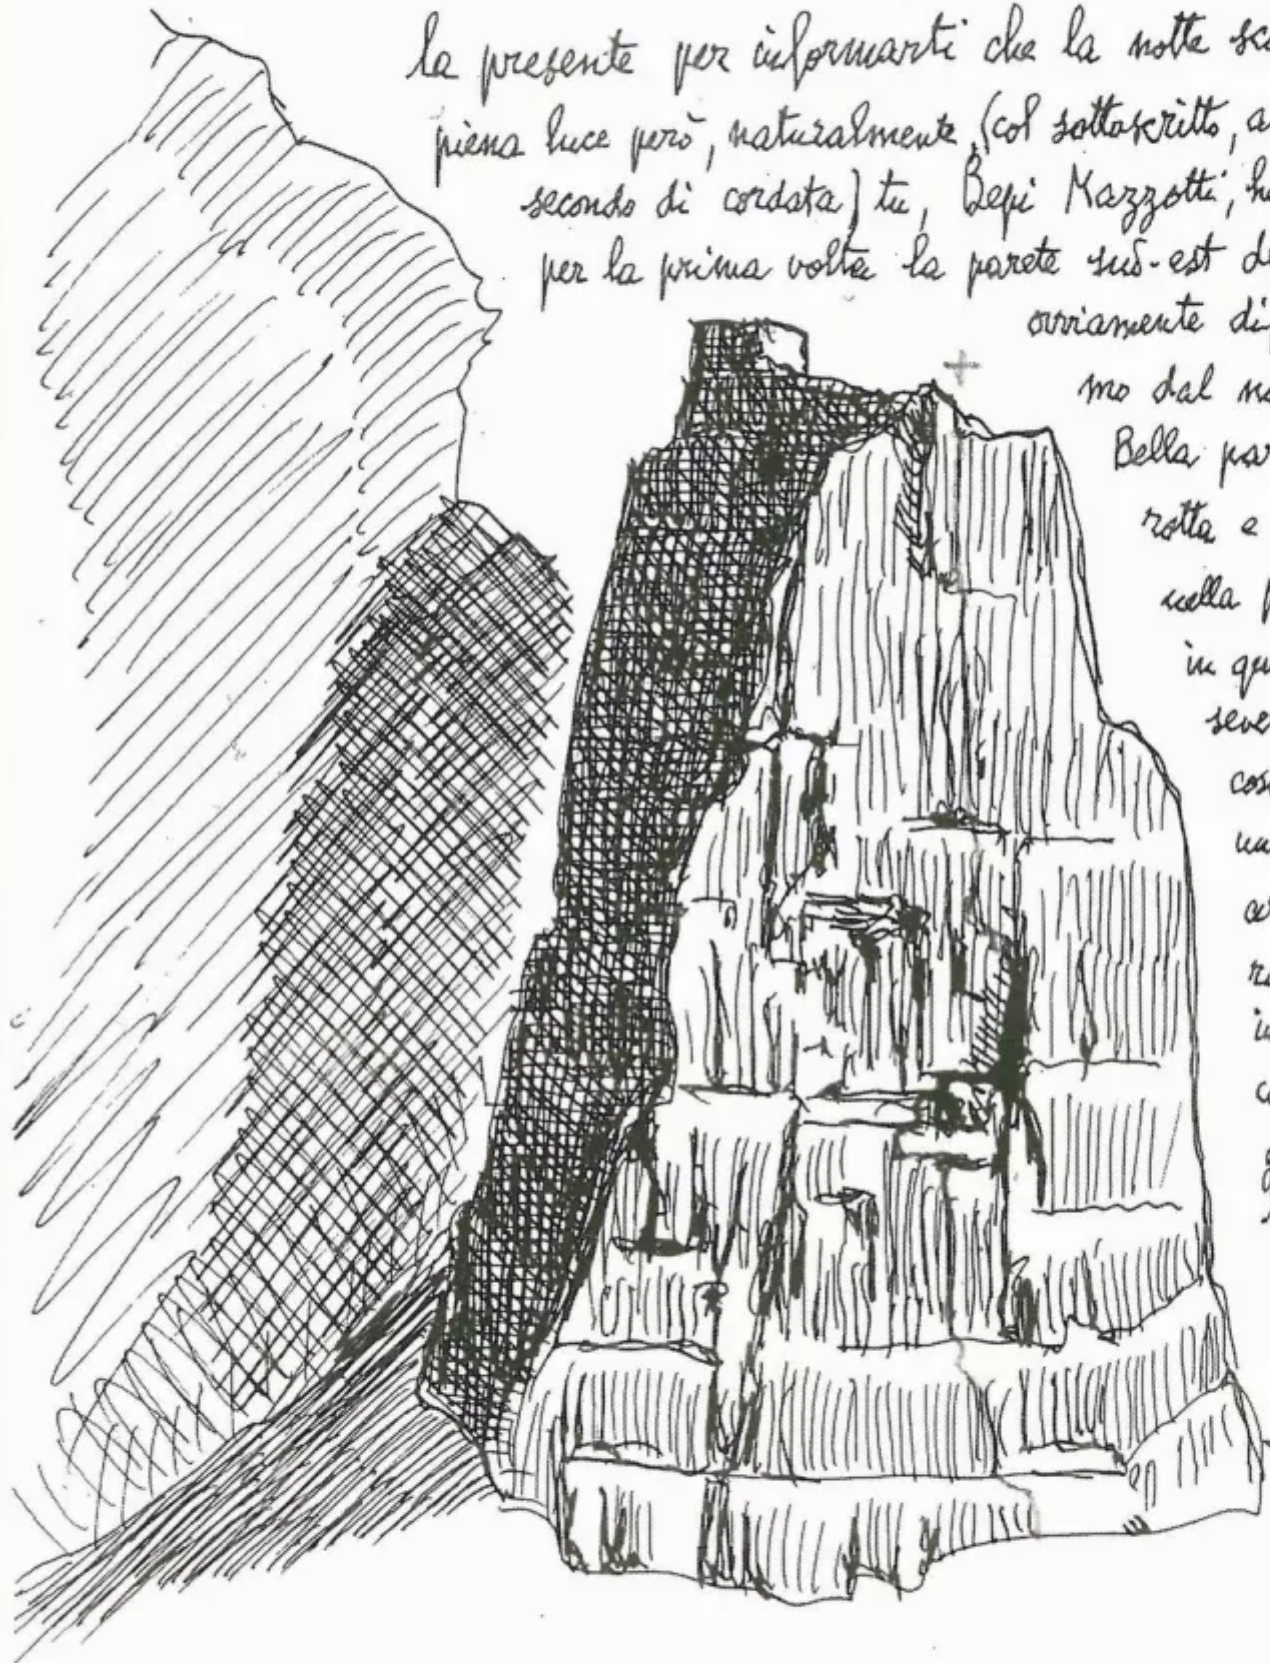 la presente per informarti che la notte sco
piena luce però, naturalmente, (col sottoscritto, a
secondo di cordata) tu, Bepi Mazzotti, ha
per la prima volta la parete sud-est de
ovviamente di
mo dal no
Bella par
rotta e
nella p
in qu
seve
cos
un
ce
ra
in
c
g